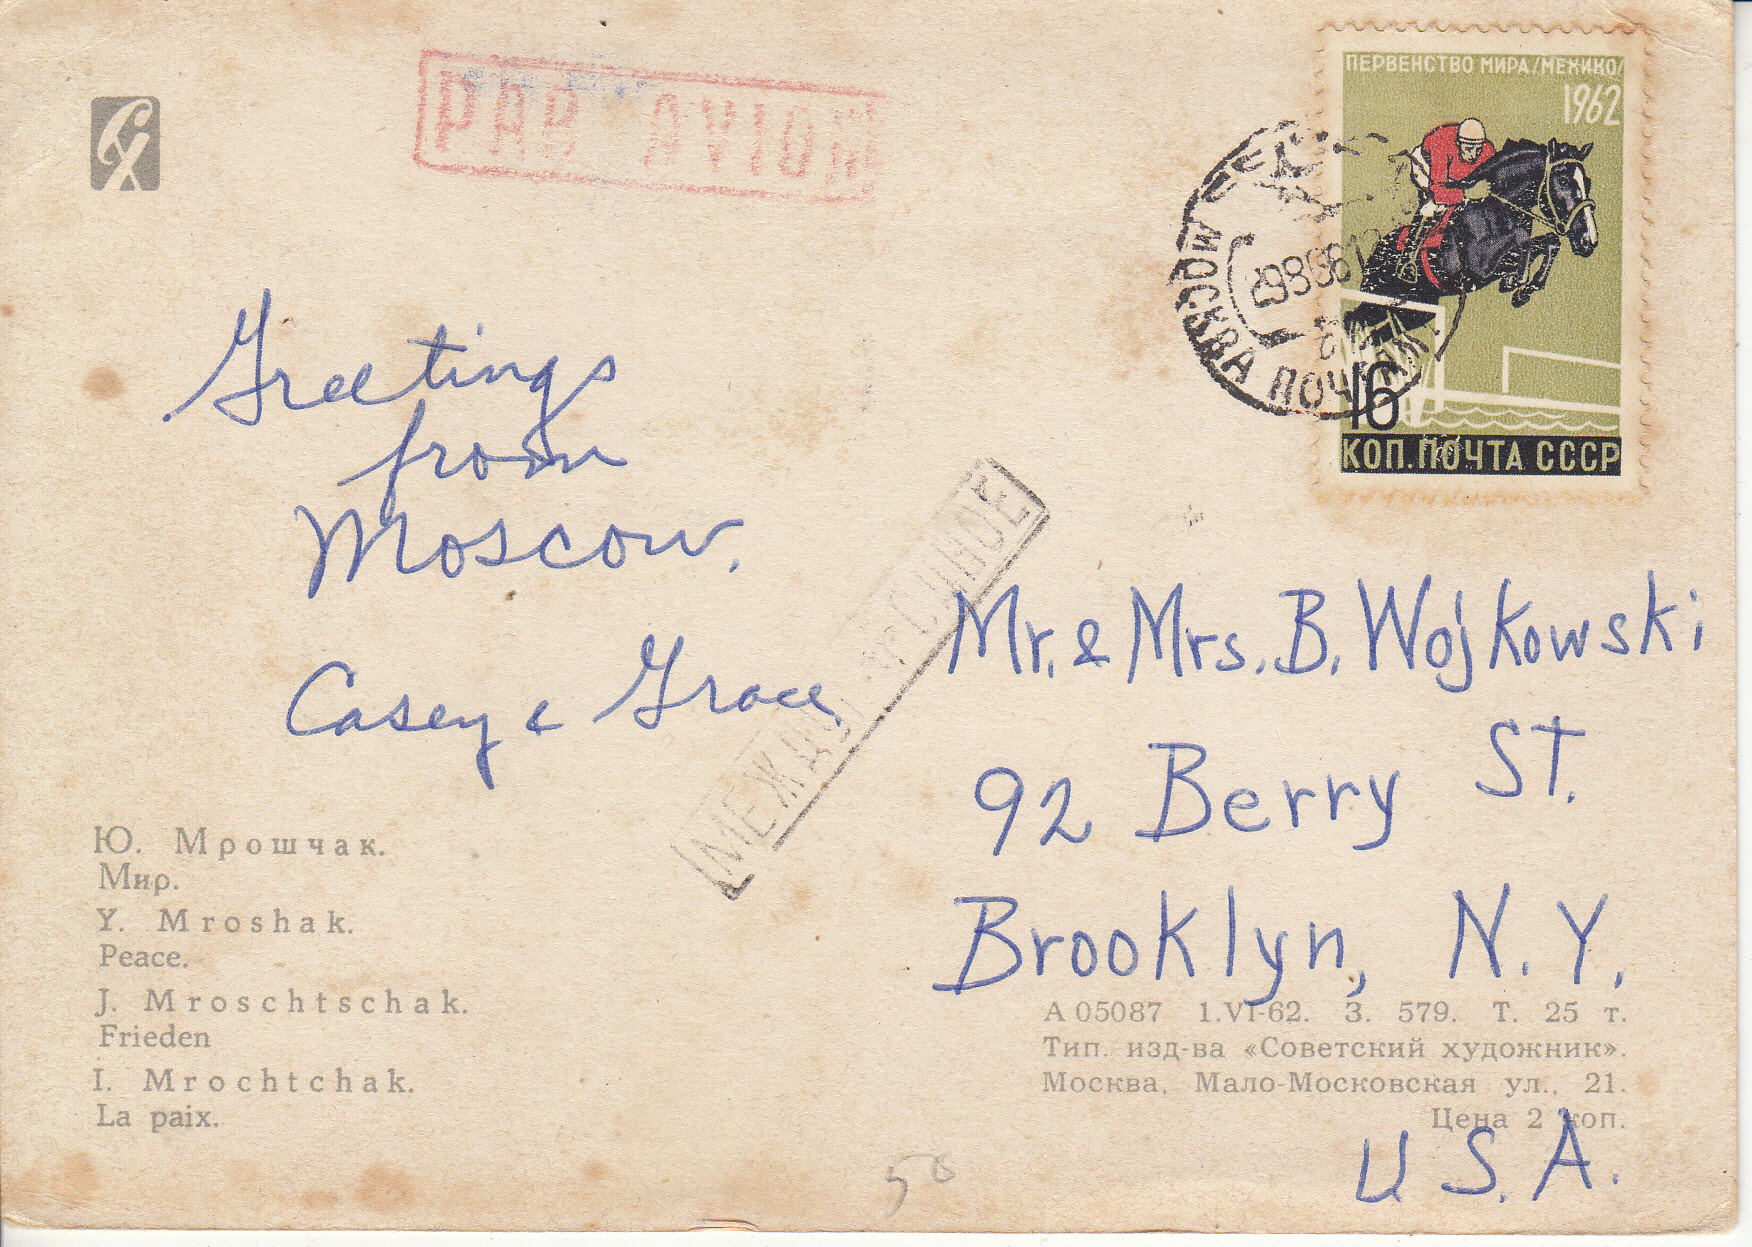 PAR AVION
ПЕРВЕНСТВО МИРА/МЕХИКО/
1962
МОСКВА
16
КОП. ПОЧТА СССР
Greetings
from
Moscow.
Casey & Grace
Mr. & Mrs. B. Wojkowski
92 Berry St.
Brooklyn, N.Y.
U.S.A.
Ю. Мрошчак.
Мир.
Y. Mroshak.
Peace.
J. Mroschtschak.
Frieden
I. Mrochtchak.
La paix.
А 05087 1.VI-62. З. 579. Т. 25 т.
Тип. изд-ва «Советский художник».
Москва, Мало-Московская ул., 21.
Цена 2 коп.
50